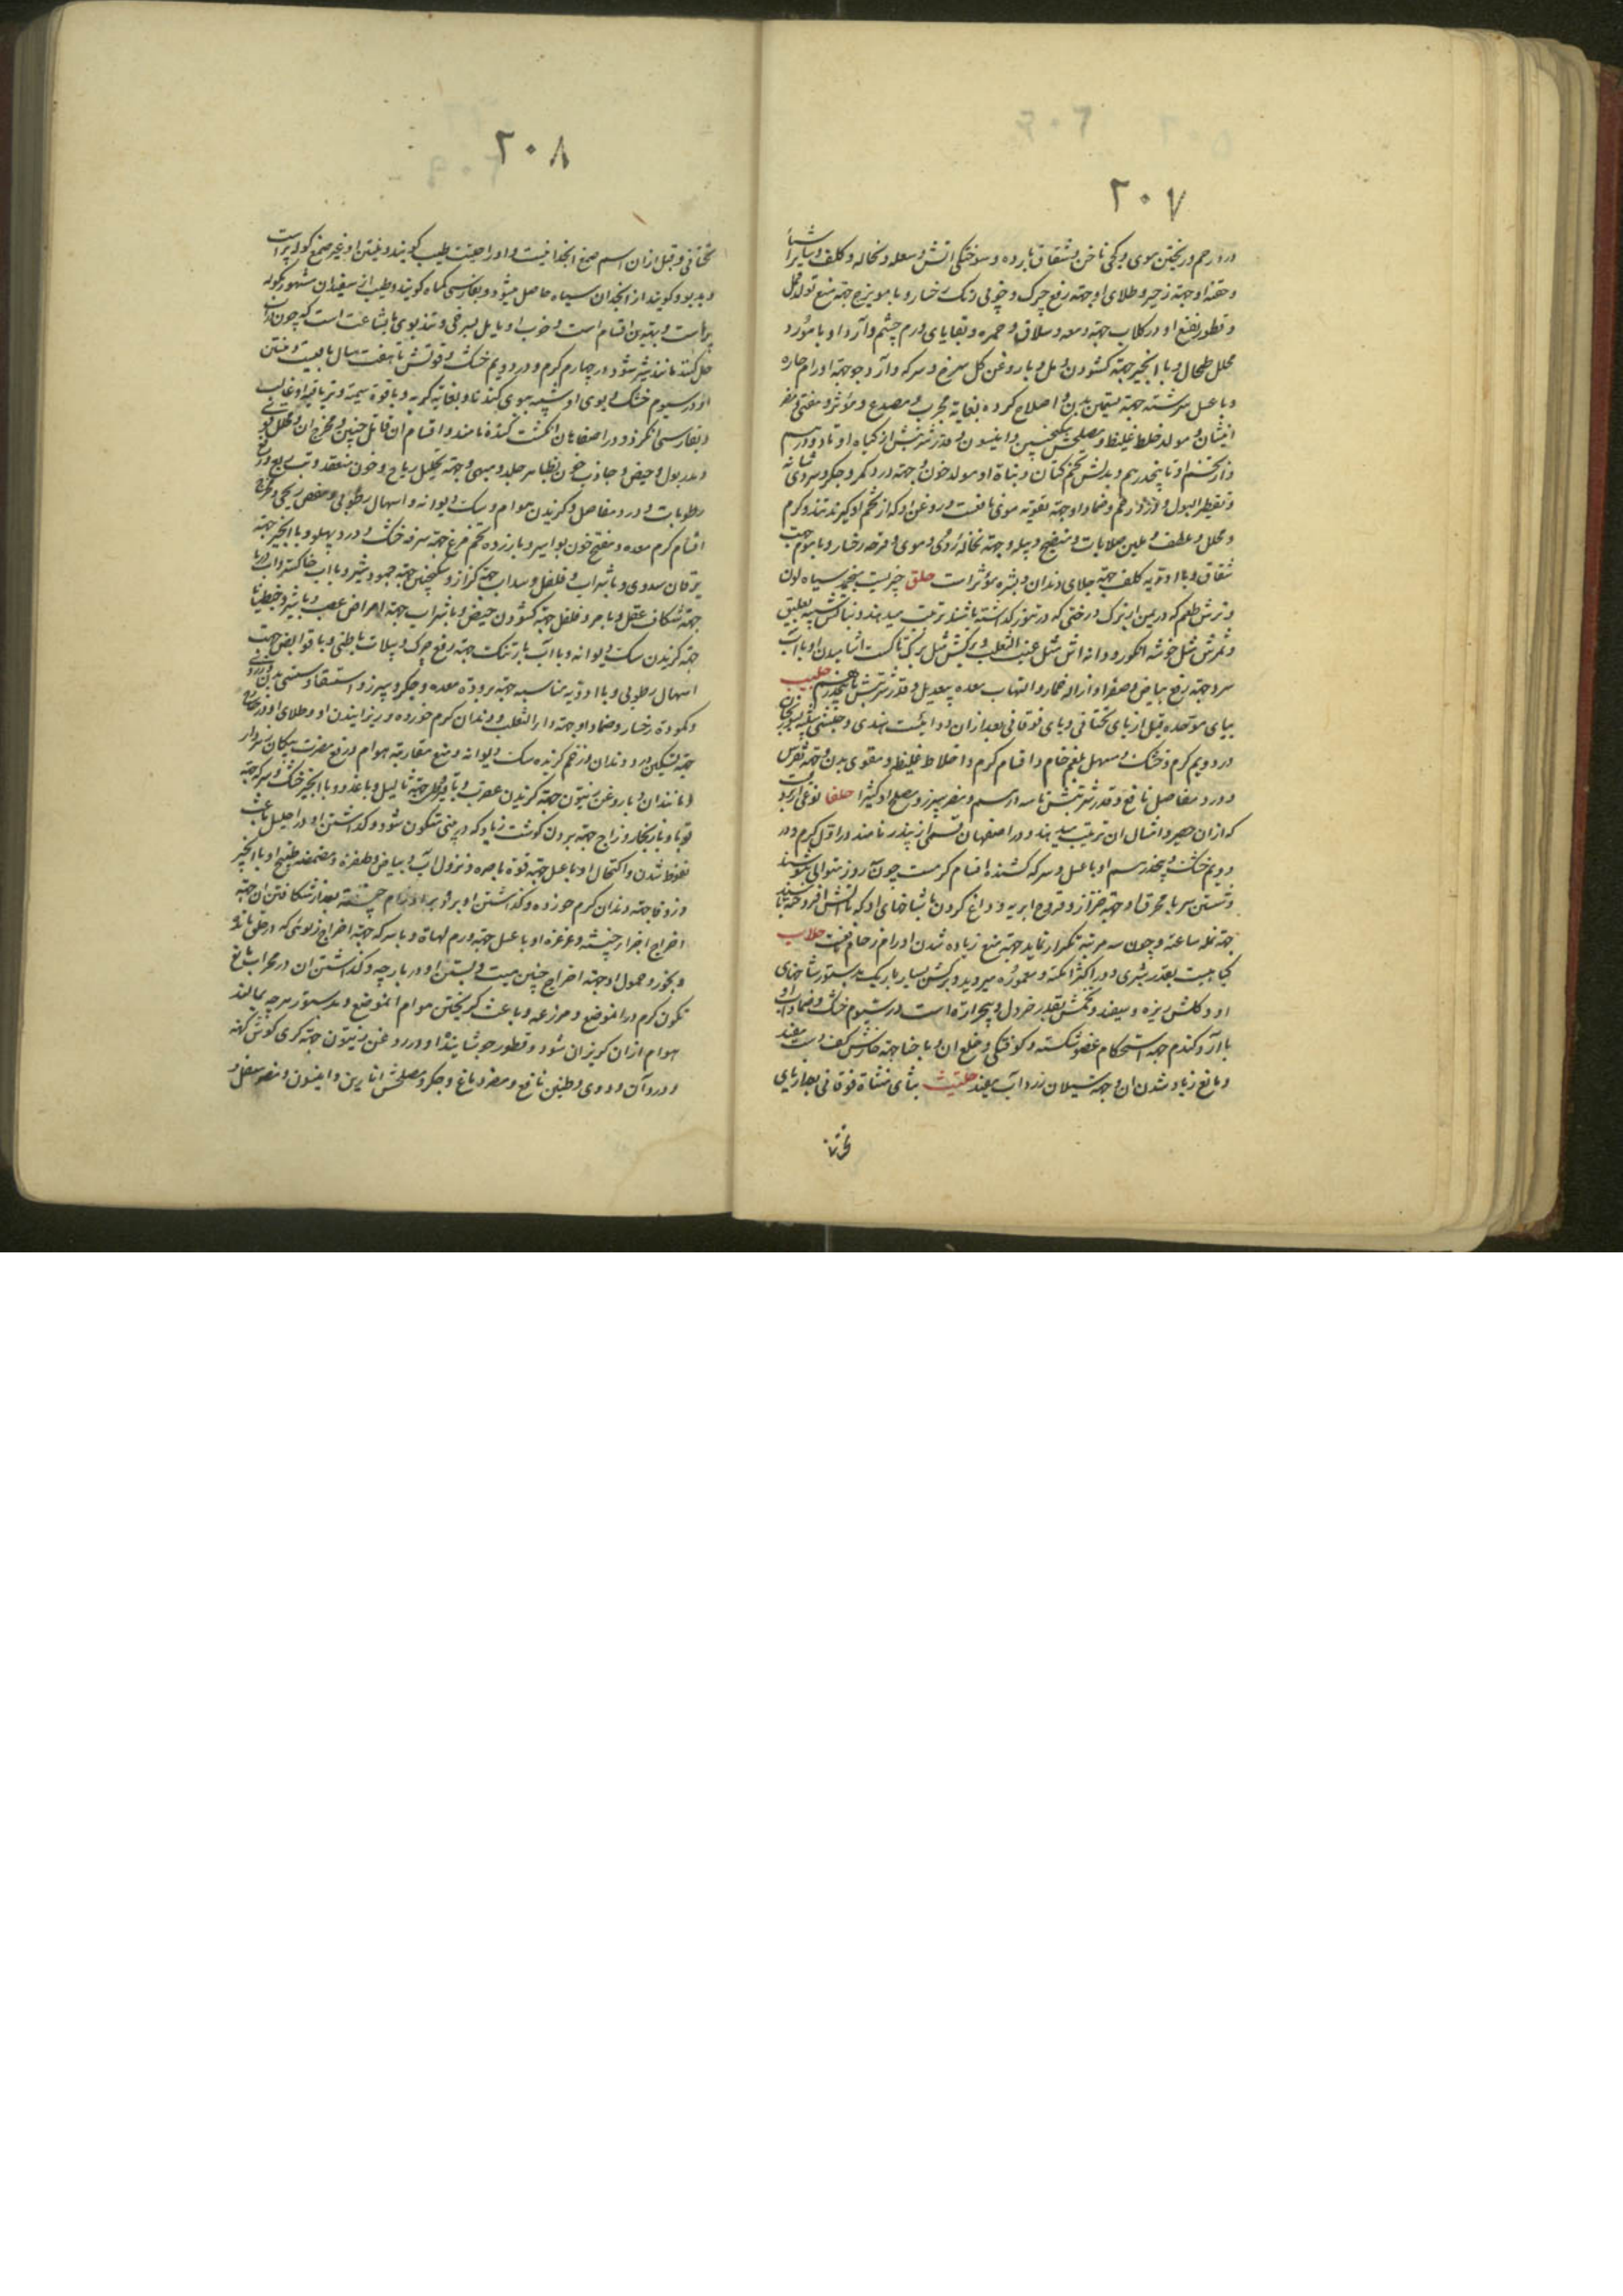 ٢٠٧
در رحم و ریختن موی و کجی ناخن و شقاق بارده و سوختگی اتش و سعله و نخاله و کلف و سایر اشیا
و حقنهٔ او جهة زحیر و طلای او جهة رفع چرک و خوبی رنک رخسار و با مویزج جهة منع تولد قمل
و قطور نقیع او در کلاب جهة دمعه و سلاق و حمره و بقایای ورم چشم و آرد او با
محلل طحال و با انجیر جهة کشودن دمل و با روغن کل سرخ و سرکه و آرد جو جهة اورام حاره
و با عسل سرشته جهة تسمین بدن و اصلاح کرده بغایة مجرب و مصدع و مضر
انثیان و مولد خلط غلیظ و مصلحش سکنجبین و انیسون و قدر شربتش از کیاه او تا ده درهم
و از تخم او تا پنجدرهم و بدلش تخم کتان و نباة او مولد خون و جهة درد کمر و جکر و سردی مثانه
و تقطیر البول و درد رحم و ضماد او جهة تقویة موی نافعست و روغن او که از تخم او کیرند تند و کرم
و محلل و ملطف و ملین صلابات و منضج دبیله و جهة نخاله و موی و قرحه رخسار و با موم جهت
شقاق و با ادویه کلف جهة جلای دندان و بشره مؤثر است حلق چیزیست منجمد سیاه لون
و ترش طعم که در یمن از برک درختی که در تنور کذاشته باشند ترتیب میدهند و نباتش شبیه بعلیق
و ثمرش مثل خوشه انکور و دانه اش مثل عنب الثعلب و برکش مثل برک تاکست اشامیدن او با آب
سرد جهة رفع بیاض و صفرا و ازاله خمار و التهاب معده بیعدیل و قدر شربتش تا هفتدرهم حلبیب
ببای موحده قبل از یای تحتانی و بای فوقانی بعد از ان دوائیست هندی و خنثی شبیه بسورنجان
در دویم کرم و خشک و مسهل بلغم خام و اقسام کرم و اخلاط غلیظه و مقوی بدن و جهة نقرس
و درد مفاصل نافع و قدر شربتش تا سه درهم و مضر سپرز و مصلح او کثیرا حلفا نوعی از بردیست
که ازان حصیر و امثال ان ترتیب میدهند و در اصفهان قسمی از پیزر نامند در اول کرم و در
دویم خشک و پنجدرهم او با عسل و سرکه کشنده اقسام کرمست چون روز متوالی بنوشند
و شستن سر با محرق او جهة حزاز و قروح ابریه و داغ کردن با شاخهای او که باتش افروخته باشند
جهة نمله ساعیه و چون سه مرتبه تکرار نماید جهة منع زیاده شدن امراض زحام نافعست حلاب
کیاهیست بقدر شبری و در اکثر امکنه و معموره میروید و برکش بسیار باریک بدستور شاخهای
او و کلش ریزه و سفید و تخمش بقدر خردل و بیحرارة است در سیوم خشک و ضماد او
با آرد کندم جهة استحکام عضو شکسته و کوفتکی و خلع ان و با حنا جهة خارش کف دست مفید
و مانع زیاد شدن ان و جهة سیلان زرداب مفید حلتیت بتای مثناة فوقانی بعد از یای
تحتانی
٢٠٨
تحتانی و قبل ازان اسم صمغ انجدانست و او را حلتیت طیب کویند و منتن او غیر صمغ کوله پر است
و بدبو و کویند از انجدان سیاه حاصل میشود و بفارسی کماه کویند و طیب از سفید ان مشهور بکوله
پر است و بهترین اقسام است و خوب او مایل بسرخی و تند بوی با بشاعت است که چون در آب
حل کنند مانند شیر شود در چهارم کرم و در دویم خشک و قوتش تا هفت سال باقیست و منتن
او در سیوم خشک و بوی او شبیه ببوی کندنا و بغایة کریه و با قوة سمیه و تریاقیه او غالب
و بفارسی انکزد و در اصفاهان انکشت کنده نامند و اقسام ان قاتل جنین و مخرج ان و محلل
و مدر بول و حیض و جاذب خون بظاهر جلد و مبهی و جهة تحلیل ریاح و خون منعقد و تب ربع و رفع
رطوبات و درد مفاصل و کزیدن هوام و سک دیوانه و اسهال رطوبی و مغص ریحی و مخرج
اقسام کرم معده و مفتح خون بواسیر و با زرده تخم مرغ جهة سرفه خشک و درد پهلو و با انجیر جهة
یرقان سددی و با شراب و فلفل و سداب جهة کزاز و سکنجبین جهة جمود شیر و با آب خاکستر
جهة شکاف عقل و با مر و فلفل جهة کشودن حیض و با شراب جهة امراض عصب و با شیر و جنطیانا
جهة کزیدن سک دیوانه و با آب بارتنک جهة رفع چرک و بیلات باطنی و با قوابض جهت
اسهال رطوبی و با ادویه مناسبه جهة برودة معده و جکر و سپرز و استسقا و سستی بدن
و کمودة رخسار و ضماد او جهة داء الثعلب و دندان کرم خورده و ریزانیدن او و طلای او
جهة تسکین درد دندان و زخم کزیده سک دیوانه و منع مقاربة هوام و رفع مضرت پیکان زهردار
و مانند ان و با روغن زیتون جهة کزیدن عقرب و رتیلا و جهة ثالیل و با غدد و با انجیر خشک و سرکه جهة
قوبا و با زنجار و زاج جهة بردن کوشت زیاد که در بینی متکون شود و کذاشتن او در احلیل باعث
نعوظ شدن و اکتحال او با عسل جهة قوة باصره و نزول آب و بیاض و ظفره و مضمضه طبیخ او با انجیر
و زوفا جهة دندان کرم خورده و کذاشتن او بر بعد از شکافتن ان جهة
اخراج اجزاء خبیثه و غرغره او با عسل جهة ورم لهاة و با سرکه جهة اخراج زلوئی که در حلق
و بخور و حمول او جهة اخراج جنین میت و بستن او در پارچه و کذاشتن ان در مجرای
تکون کرم در انموضع و مزرعه و باعث کریختن هوام انموضع و بدستور بهر چه بمالند
هوام ازان کریزان شود و قطور جوشانیدهٔ او در روغن زیتون جهة کری کوش کهنه
و درد آن و دوی و طنین نافع و مضر دماغ و جکر و مصلحش انارین و انیسون و مضر سفل و